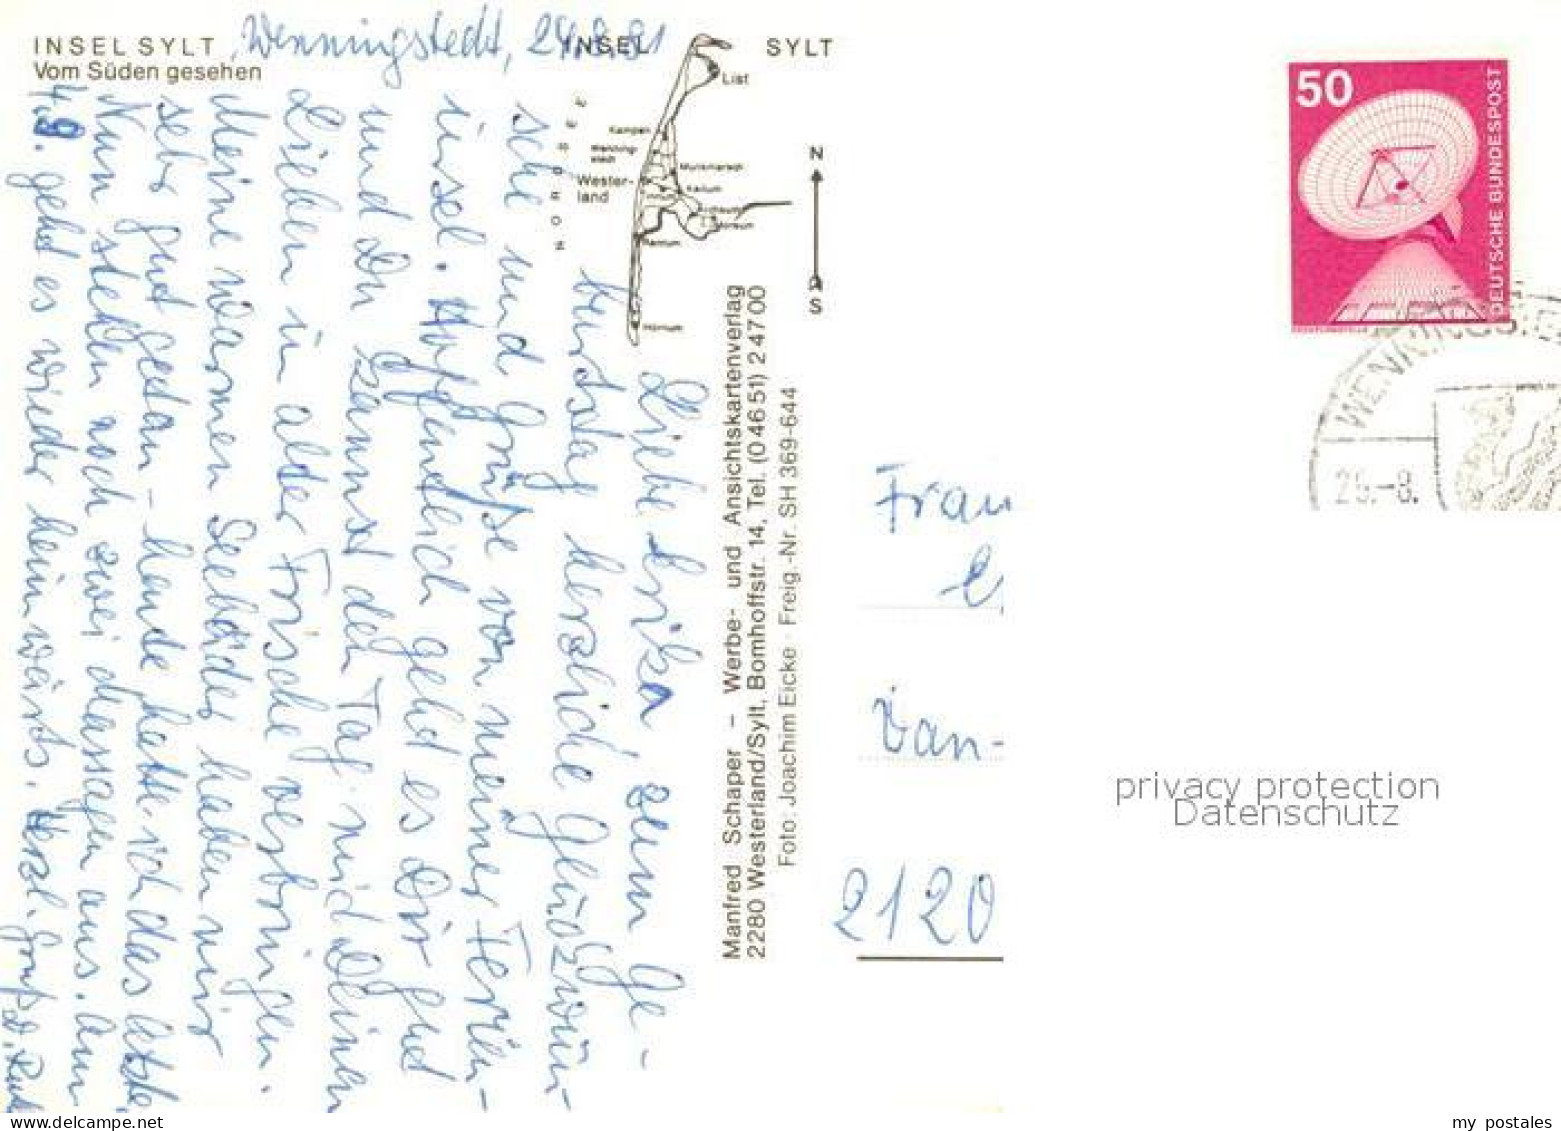 INSEL SYLT
Vom Süden gesehen
Wenningstedt, 24.8.81
INSEL SYLT
List
Kampen
Wenning-
stedt
Wester-
land
Munkmarsch
Keitum
Morsum
Rantum
Hörnum
NORDSEE
N
S
Liebe Erika, zum Ge-
burtstag herzliche Glückwün-
sche und Grüße von meiner Ferien-
insel. Hoffentlich geht es Dir gut
und Du kannst den Tag mit Deinen
Lieben in alter Frische verbringen.
Meine warmen Seebäder haben mir
sehr gut getan - heute hatte ich das letzte.
Nun stehen noch zwei Massagen aus. Am
4.9. geht es wieder heimwärts. Herzl. Gruß
Manfred Schaper – Werbe- und Ansichtskartenverlag
2280 Westerland/Sylt, Bomhoffstr. 14, Tel. (0 46 51) 2 47 00
Foto: Joachim Eicke · Freig.-Nr. SH 369-644
50
DEUTSCHE BUNDESPOST
WENNINGST
-8.
Frau
2120
privacy protection
Datenschutz
www.delcampe.net
my_postales